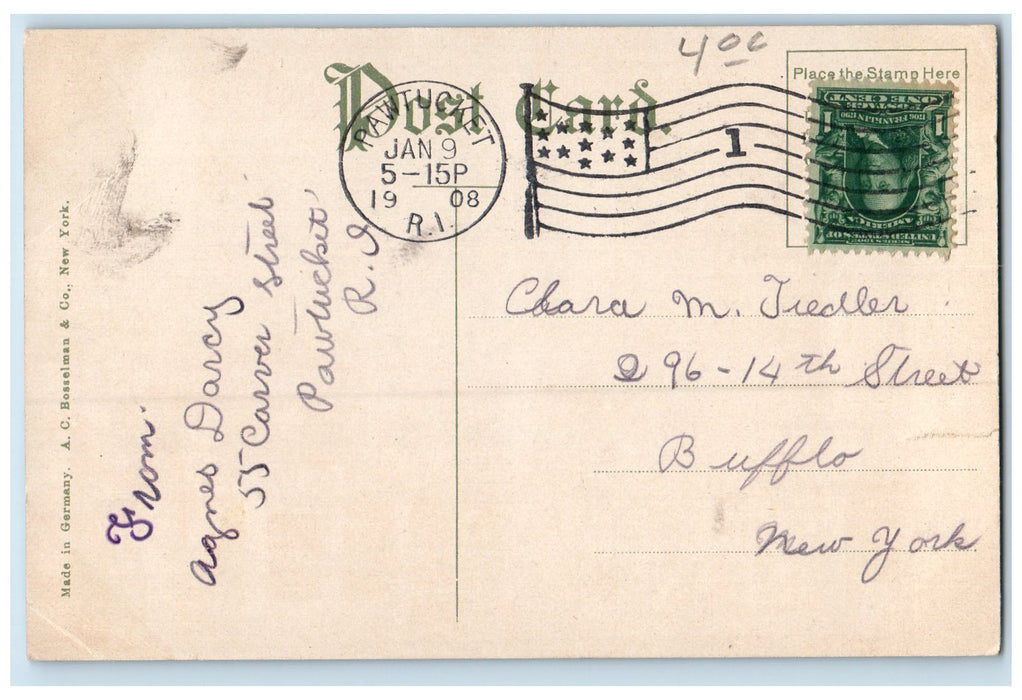 4 00
Post Card.
Place the Stamp Here
PAWTUCKET
JAN 9
5-15P
19 08
R.I.
1
POSTAGE
ONE CENT
1 1
1706 FRANKLIN 1790
SERIES 1902
UNITED STATES OF
AMERICA
Made in Germany. A. C. Bosselman & Co., New York.
From.
Agnes Darcy
55 Carver Street
Pawtucket
R. I
Clara M. Tiedler
296-14th Street
Bufflo
New York